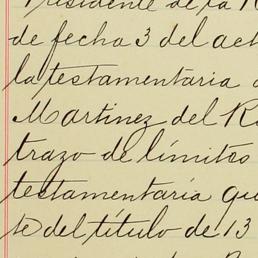 Presidente de la R
de fecha 3 del act
la testamentaria d
Martinez del R
trazo de límites
testamentaria que
se del título de 13